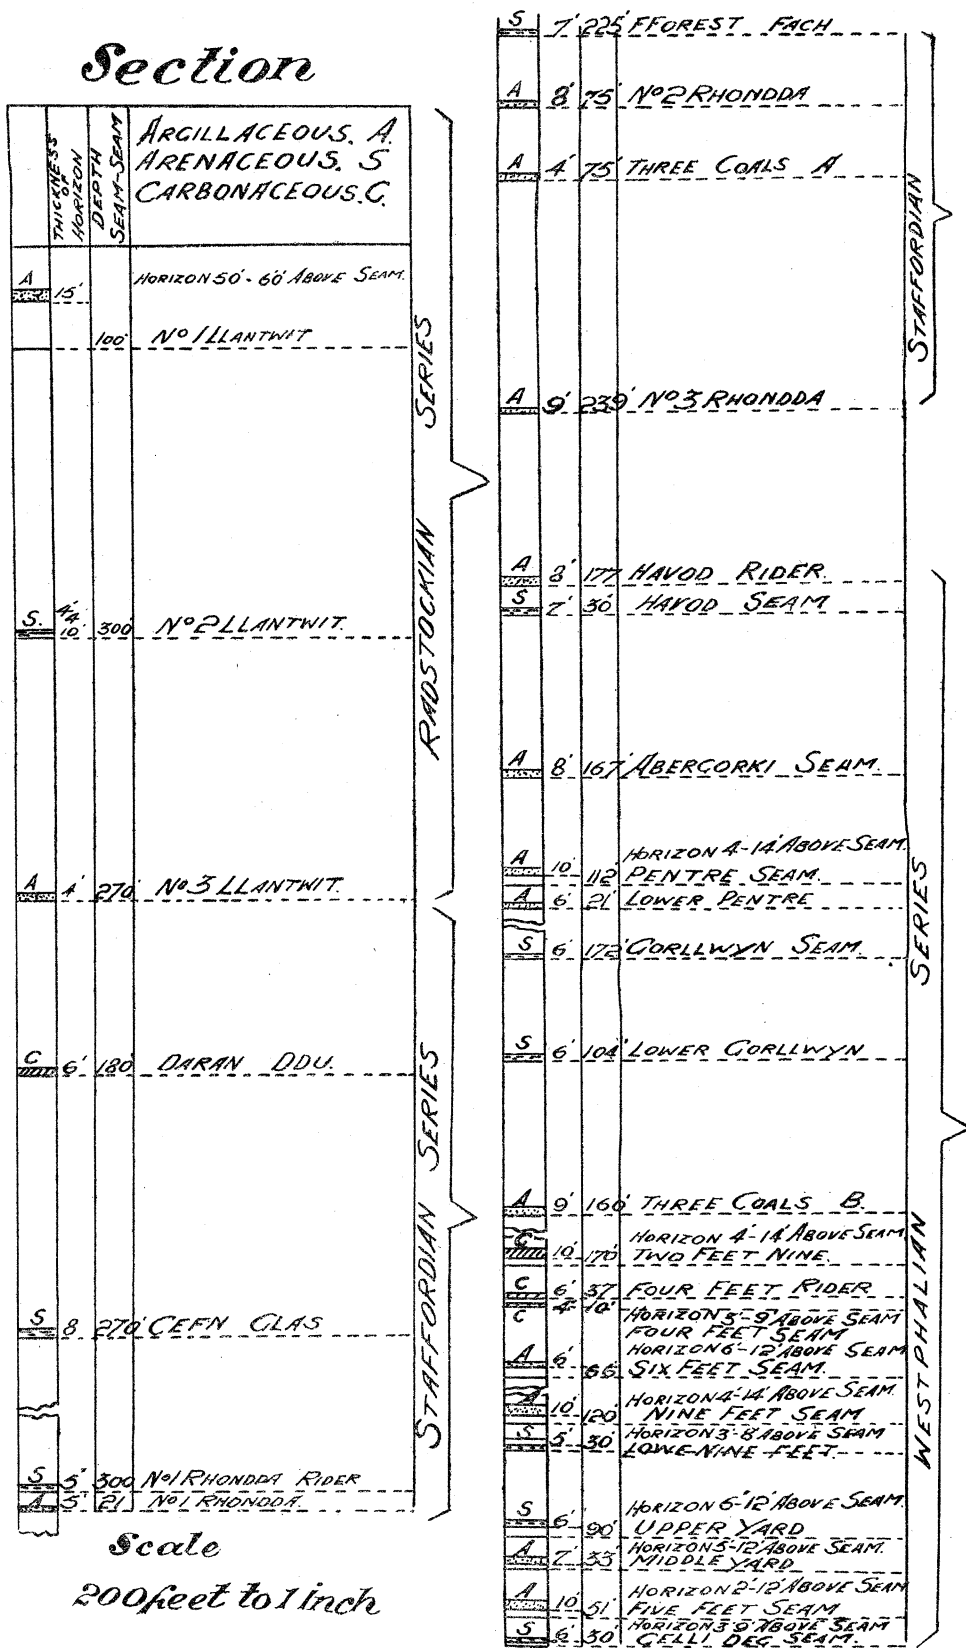 Section
THICKNESS OF HORIZON
DEPTH SEAM-SEAM
ARGILLACEOUS. A.
ARENACEOUS. S
CARBONACEOUS. C.
A 15' HORIZON 50'-60' ABOVE SEAM.
100' No 1 LLANTWIT
S. 4'4 10' 300' No 2 LLANTWIT.
A 4' 270' No 3 LLANTWIT.
RADSTOCKIAN SERIES
C 6' 180' DARAN DDU.
S 8 270' CEFN GLAS
S 5' 300 No 1 RHONDDA RIDER
A 5' 21' No 1 RHONDDA.
STAFFORDIAN SERIES
Scale
200 feet to 1 inch
S 7' 225' FFOREST FACH
A 8' 75' No 2 RHONDDA
A 4' 75' THREE COALS A
A 9' 239' No 3 RHONDDA
STAFFORDIAN
A 8' 177' HAVOD RIDER.
S 7' 30' HAVOD SEAM
A 8' 167' ABERGORKI SEAM.
HORIZON 4-14' ABOVE SEAM.
A 10' 112' PENTRE SEAM.
A 6' 21' LOWER PENTRE
S 6' 172' GORLLWYN SEAM.
S 6' 104' LOWER GORLLWYN
A 9' 160' THREE COALS B.
HORIZON 4'-14' ABOVE SEAM
C 10' 170' TWO FEET NINE.
C 6' 37' FOUR FEET RIDER
C 4' 10' HORIZON 5'-9' ABOVE SEAM
FOUR FEET SEAM
HORIZON 6'-12' ABOVE SEAM
A 6' 66' SIX FEET SEAM.
HORIZON 4'-14' ABOVE SEAM.
A 10' 120' NINE FEET SEAM
HORIZON 3'-8' ABOVE SEAM
S 5' 30' LOWE NINE FEET.
HORIZON 6'-12' ABOVE SEAM.
S 6' 90' UPPER YARD
HORIZON 5-12' ABOVE SEAM.
A 7' 33' MIDDLE YARD
HORIZON 2'-12' ABOVE SEAM
A 10' 51' FIVE FEET SEAM
HORIZON 3'9' ABOVE SEAM
S 6' 30' GELLI DEG SEAM.
WESTPHALIAN SERIES